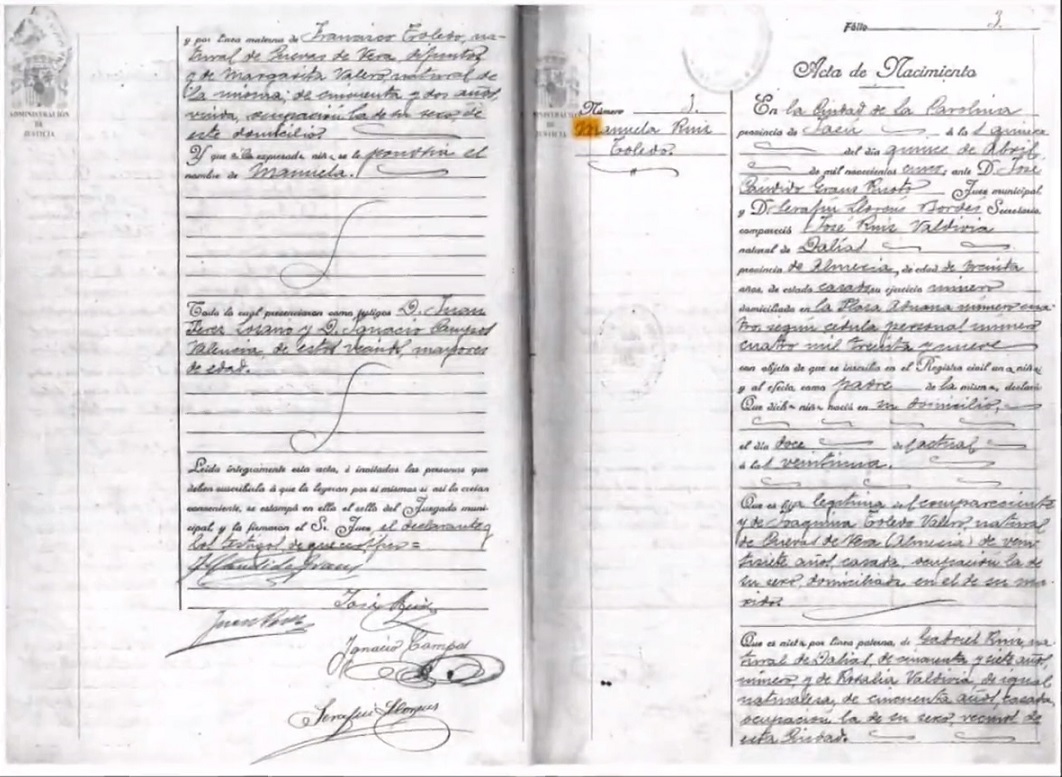 ADMINISTRACIÓN
DE
JUSTICIA
y por línea materna de Francisco Toledo, na-
tural de Cuevas de Vera difunto
y de Margarita Valero, natural de
la misma, de cincuenta y dos años,
viuda, ocupación la de su sexo, de
este domicilio
Y que a la expresada niña se le pondría el
nombre de Manuela.
Todo lo cual presenciaron como testigos D. Juan
Perez Lozano y D. Ignacio Campos
Valencia, de estos vecinos, mayores
de edad.
Leída íntegramente esta acta, é invitadas las personas que
deben suscribirla á que la leyeran por sí mismas si así lo creían
conveniente, se estampó en ella el sello del Juzgado muni-
cipal, y la firmaron el Sr. Juez, el declarante y
los testigos de que certifico =
José Ruiz
Juan Perez
Ignacio Campos
Serafin Llorens
Folio 3.
Acta de Nacimiento
Número 3.
Manuela Ruiz
Toledo.
DE
JUSTICIA
En la Ciudad de la Carolina
provincia de Jaén, á las quince
del día quince de Abril
de mil novecientos once, ante D. José
Cándido Juez municipal
y D. Serafin Llorens Bordés Secretario,
compareció José Ruiz Valdivia
natural de Dalías
provincia de Almería, de edad de treinta
años, de estado casado, su ejercicio minero
domiciliado en la Plaza Aduana número cua-
tro, según cédula personal número
cuatro mil treinta y nueve
con objeto de que se inscriba en el Registro civil una niña
y al efecto, como padre de la misma, declaró:
Que dicha niña nació en su domicilio,
el día doce del actual
á las veintiuna.
Que es hija legítima del compareciente
y de Joaquina Toledo Valero, natural
de Cuevas de Vera (Almería) de vein-
tisiete años, casada, ocupación la de
su sexo, domiciliada en el de su ma-
rido.
Que es nieta por línea paterna, de Gabriel Ruiz, na-
tural de Dalías, de cincuenta y siete años,
minero, y de Rosalía Valdivia de igual
naturaleza, de cincuenta años, casada,
ocupación la de su sexo, vecinos de
esta Ciudad.